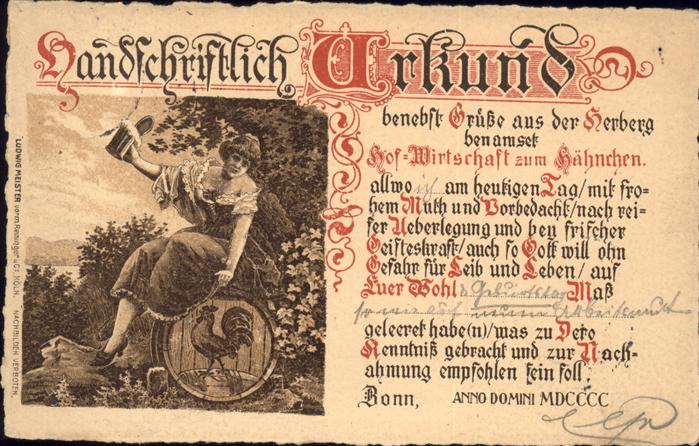 Handschriftlich Urkund
benebst Grüße aus der Herberg
benamset
Hof-Wirtschaft zum Hähnchen.
allwo ich am heutigen Tag/mit fro=
hem Muth und Vorbedacht/nach rei=
fer Ueberlegung und bey frischer
Geisteskraft/auch so Gott will ohn
Gefahr für Leib und Leben/auf
Euer Wohl & Geburtstag Maß
so wie auf
geleeret habe(n)/was zu Dero
Kenntniß gebracht und zur Nach=
ahmung empfohlen sein soll
Bonn, ANNO DOMINI MDCCCC
LUDWIG MEISTER vorm. Renninger u. Co. KÖLN. NACHBILDEN VERBOTEN.